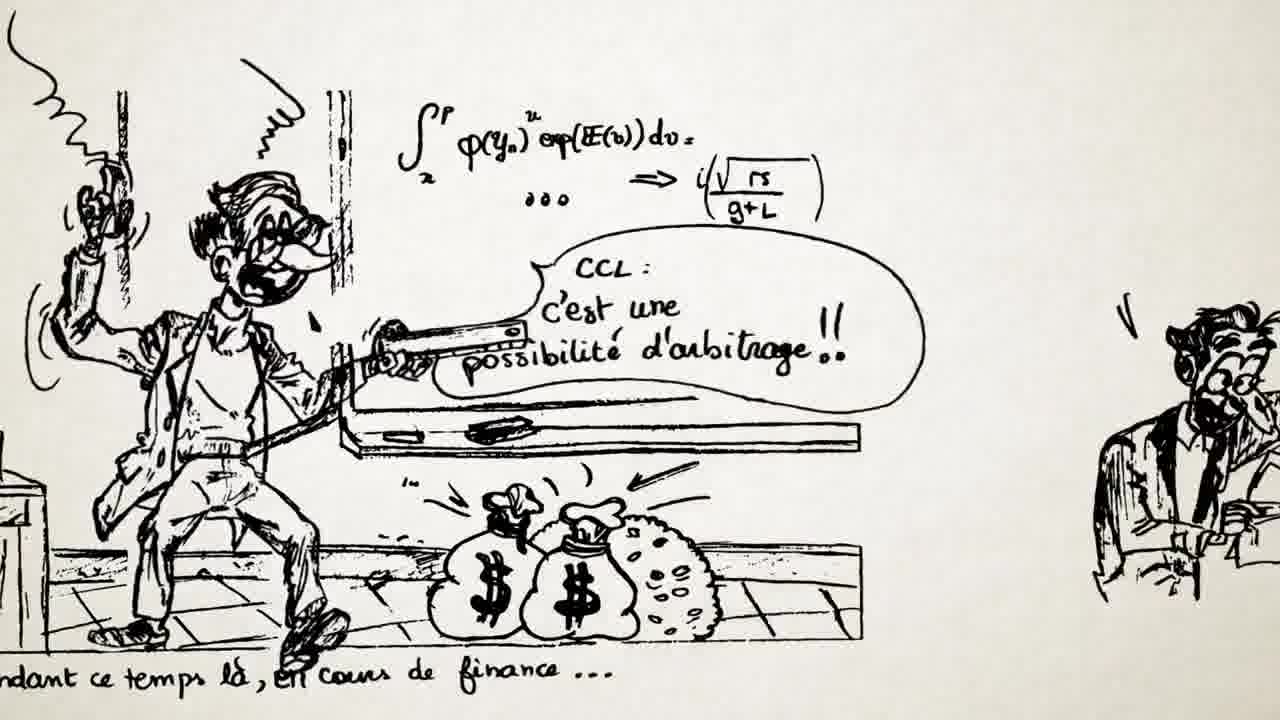 ∫ₓᵖ φ(yₙ)ˣ exp(𝔼(v)) dv =
... ⇒ i(√rs / g+L)
CCL :
c'est une
possibilité d'arbitrage !!
$ $
ndant ce temps là, en cours de finance ...